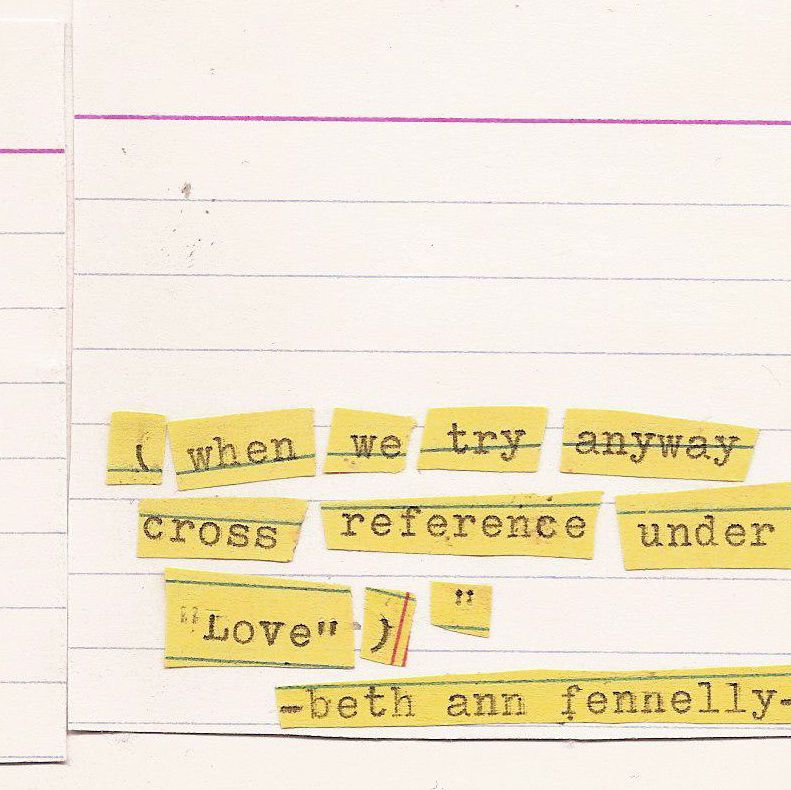 ( when we try anyway
cross reference under
"Love" ) "
-beth ann fennelly-